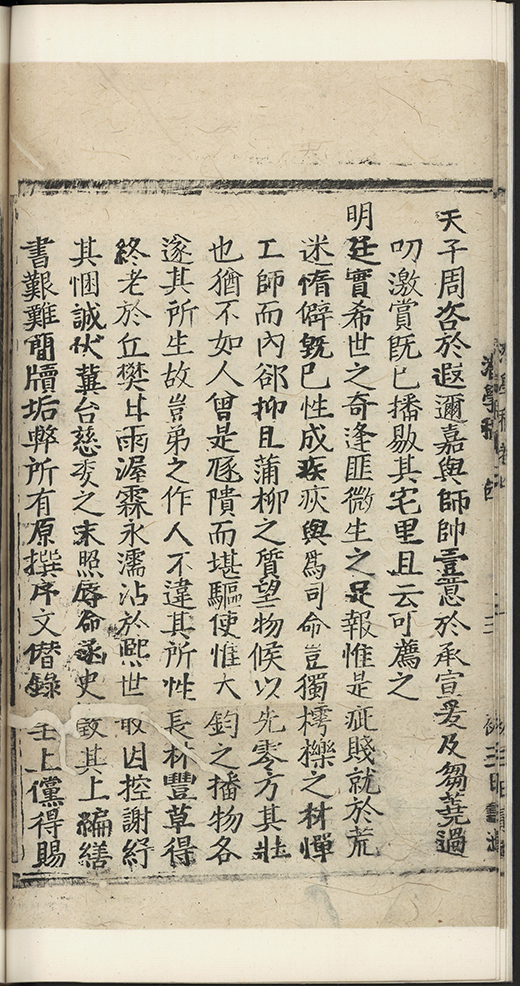 天子周咨於遐邇嘉與師帥壹意於承宣爰及芻蕘過
叨激賞既已播敭其宅里且云可薦之
明廷實希世之奇逢匪微生之足報惟是疵賤就於荒
迷惰僻既已性成疾疢與為司命豈獨樗櫟之材憚
工師而內郤抑且蒲柳之質望物候以先零方其壯
也猶不如人曾是隤而堪驅使惟大鈞之播物各
遂其所生故豈弟之作人不違其所性長林豐草得
終老於丘樊甘雨渥霖永濡沾於熙世敢因控謝紓
其悃誠伏冀台慈委之末照辱命史致其上編繕
書艱難簡牘垢弊所有原撰序文僭錄上儻得賜